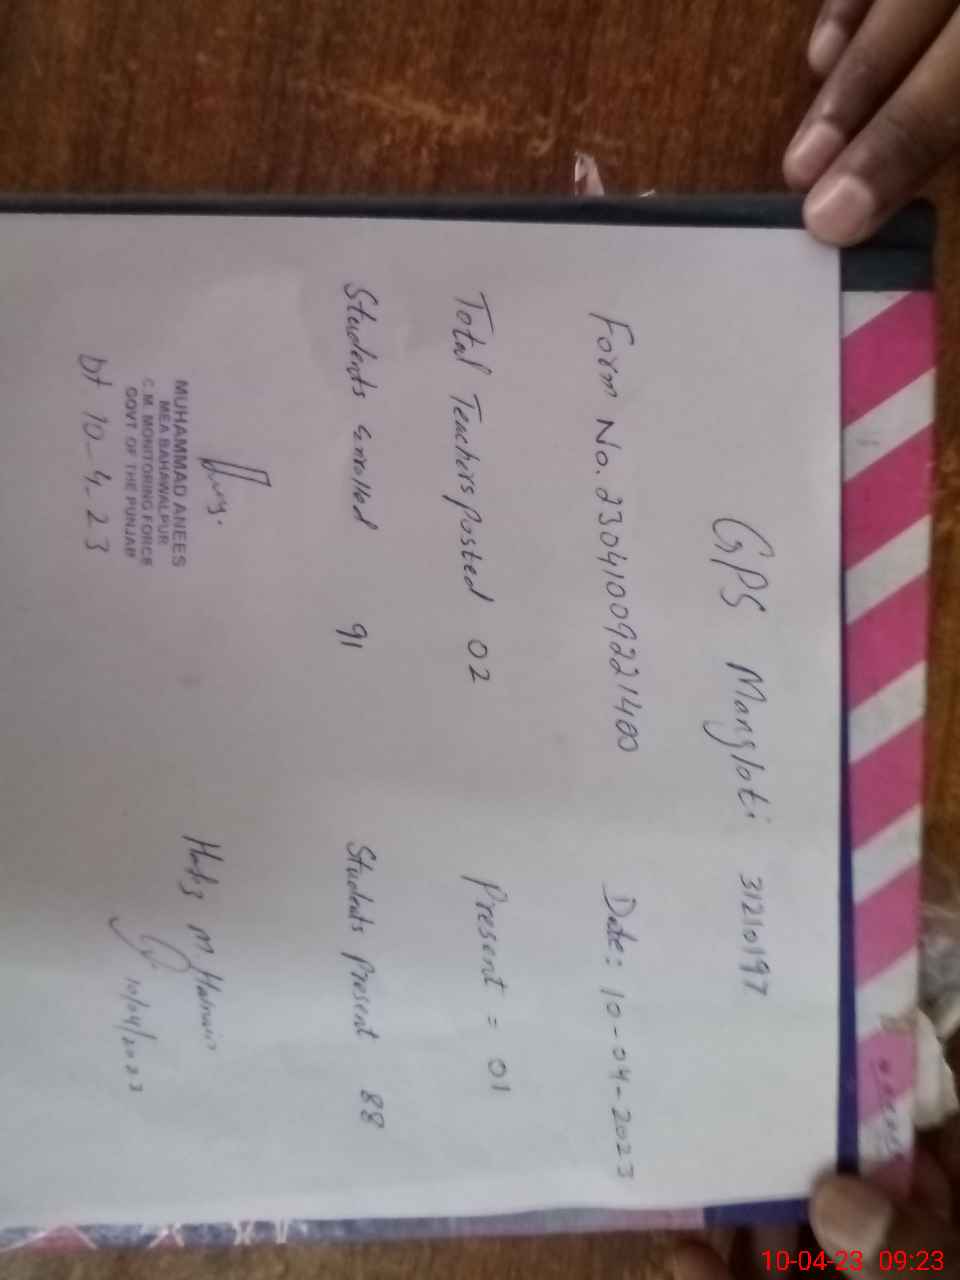 GPS Mangloti 31210197
Form No. 23041009221400 Date: 10-04-2023
Total Teachers Posted 02 Present = 01
Students enrolled 91 Students Present 88
MUHAMMAD ANEES
MEA BAHAWALPUR
C.M. MONITORING FORCE
GOVT OF THE PUNJAB
Dt. 10-4-23
M
10/04/2023
10-04-23 09:23